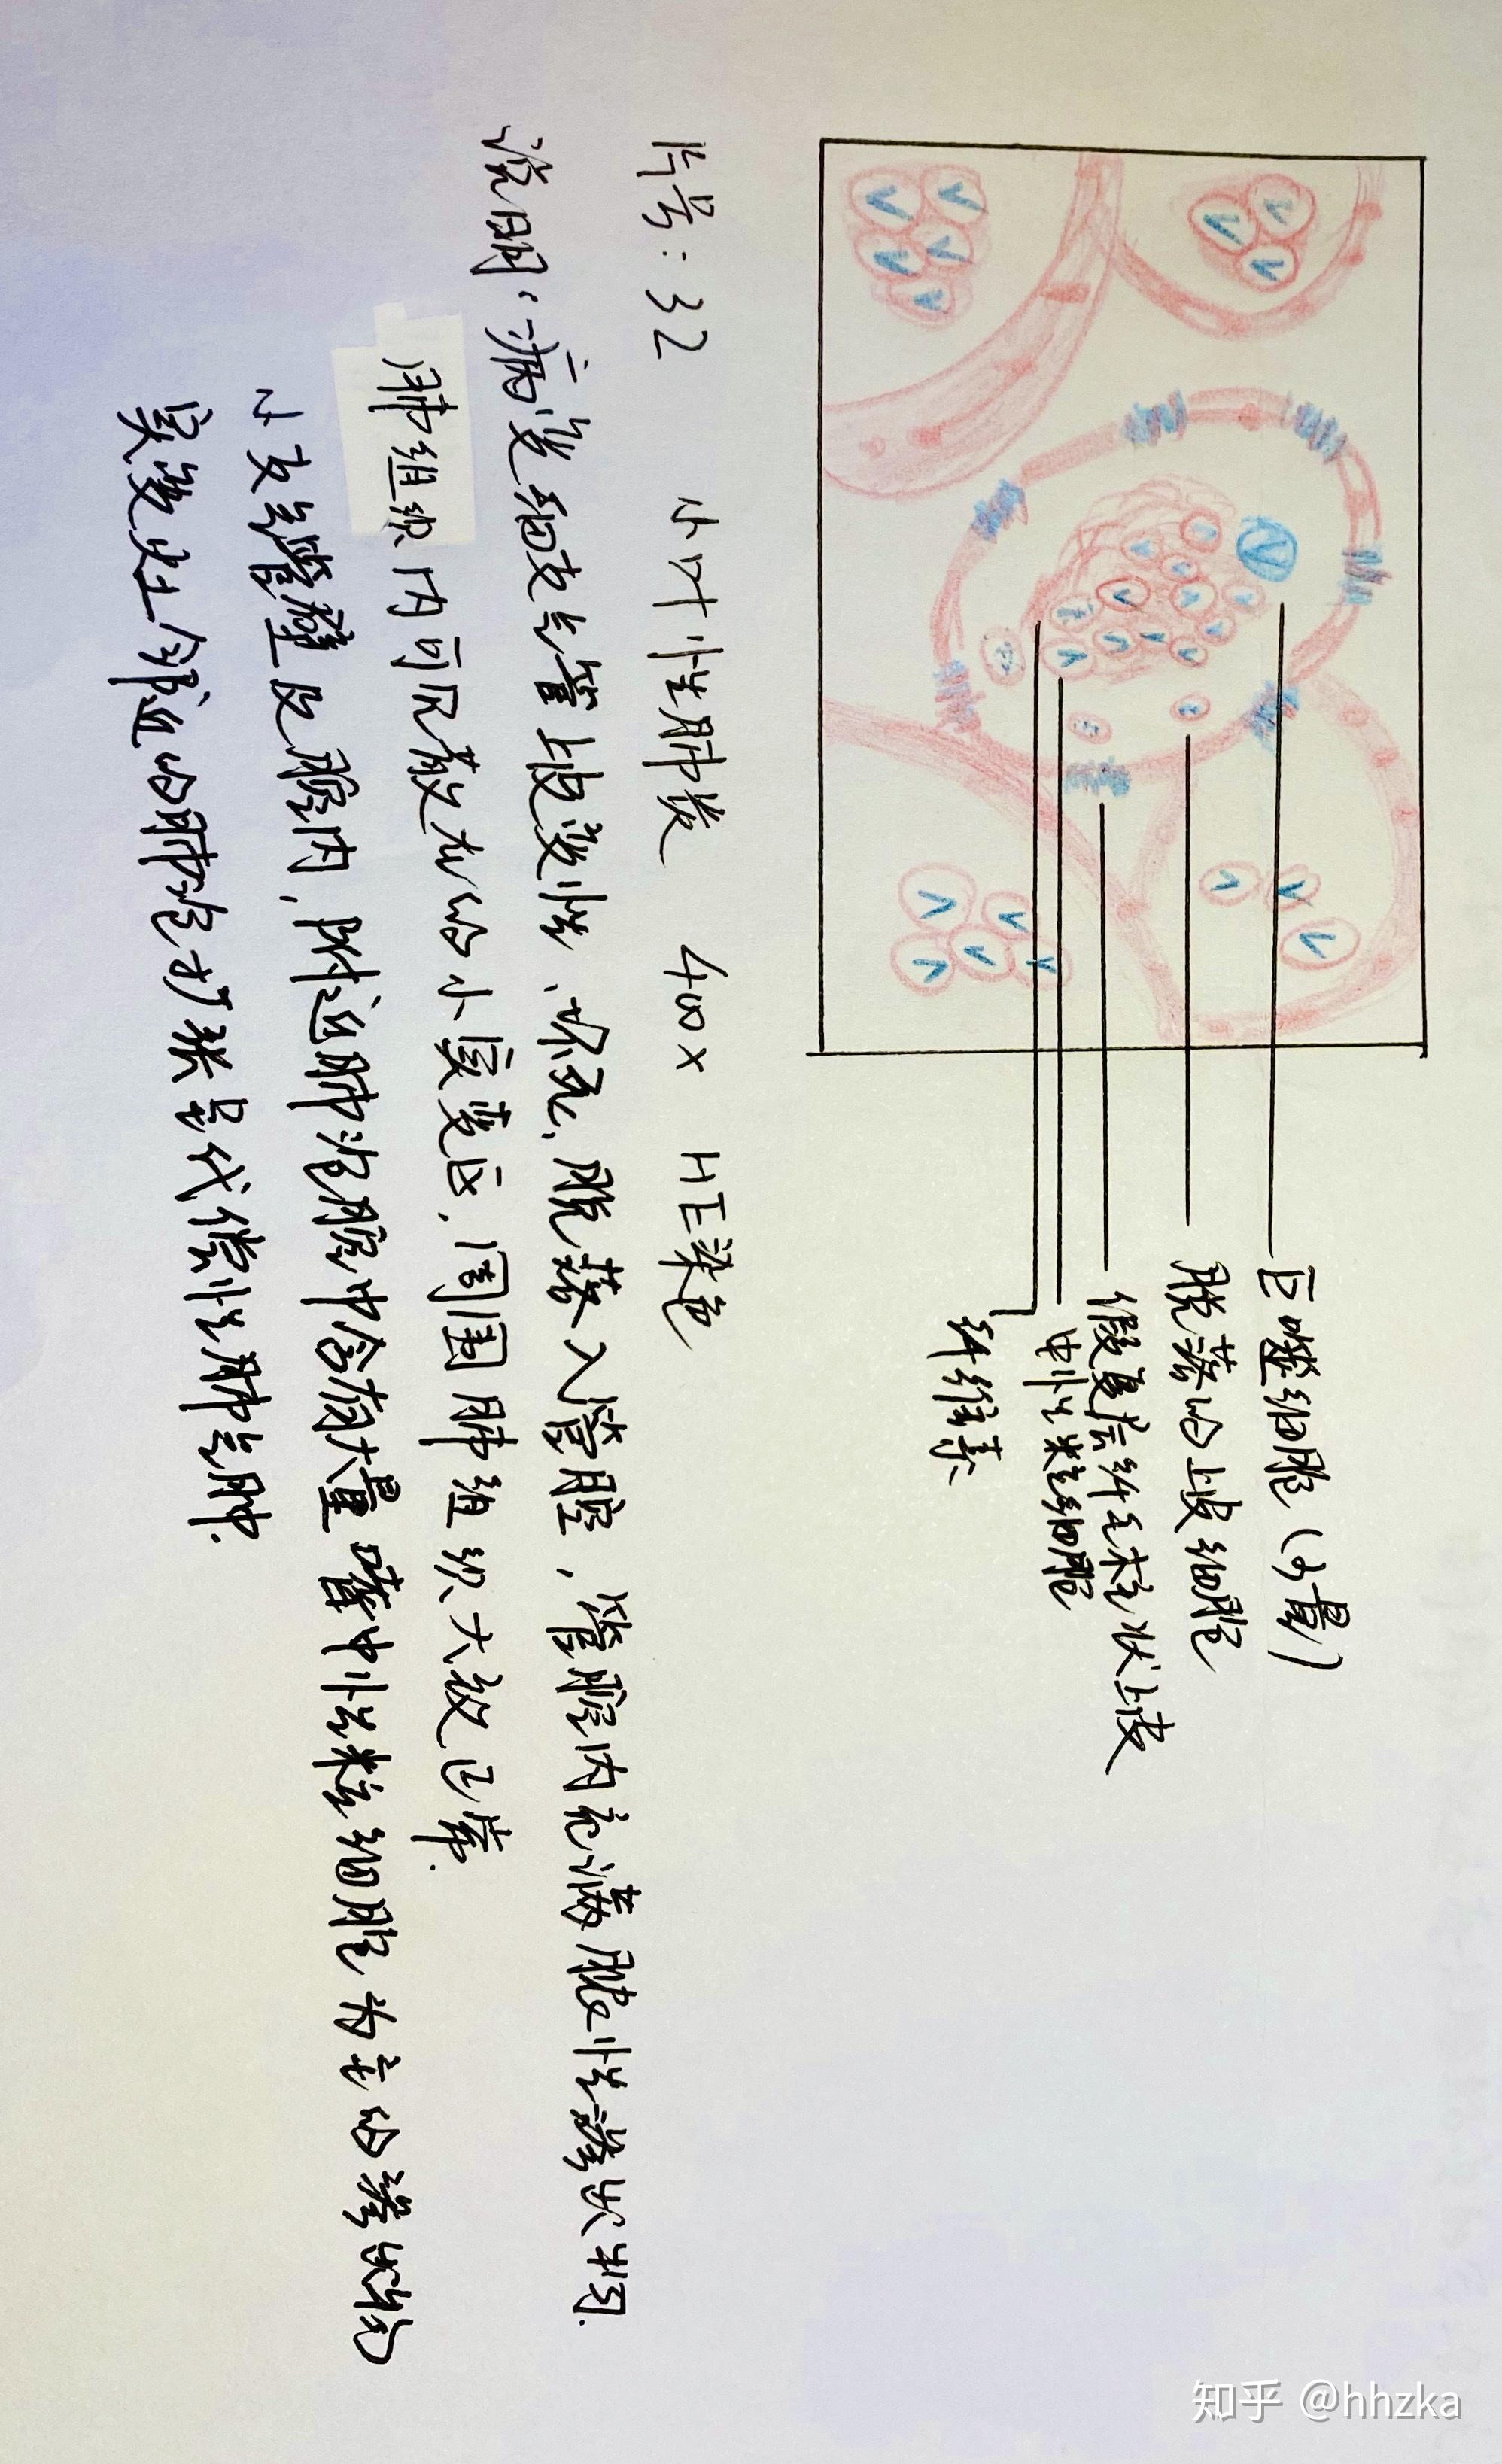 巨噬细胞(少量)
脱落的上皮细胞
假复层纤毛柱状上皮
中性粒细胞
纤维素
片号:32 小叶性肺炎 400× HE染色
说明:病变细支气管上皮变性、坏死、脱落入管腔,管腔内充满脓性渗出物.
肺组织内可见散在的小实变区,周围肺组织大致正常.
小支气管壁及腔内,附近肺泡腔中含有大量嗜中性粒细胞为主的渗出物
实变灶邻近的肺泡扩张呈代偿性肺气肿.
知乎 @hhzka